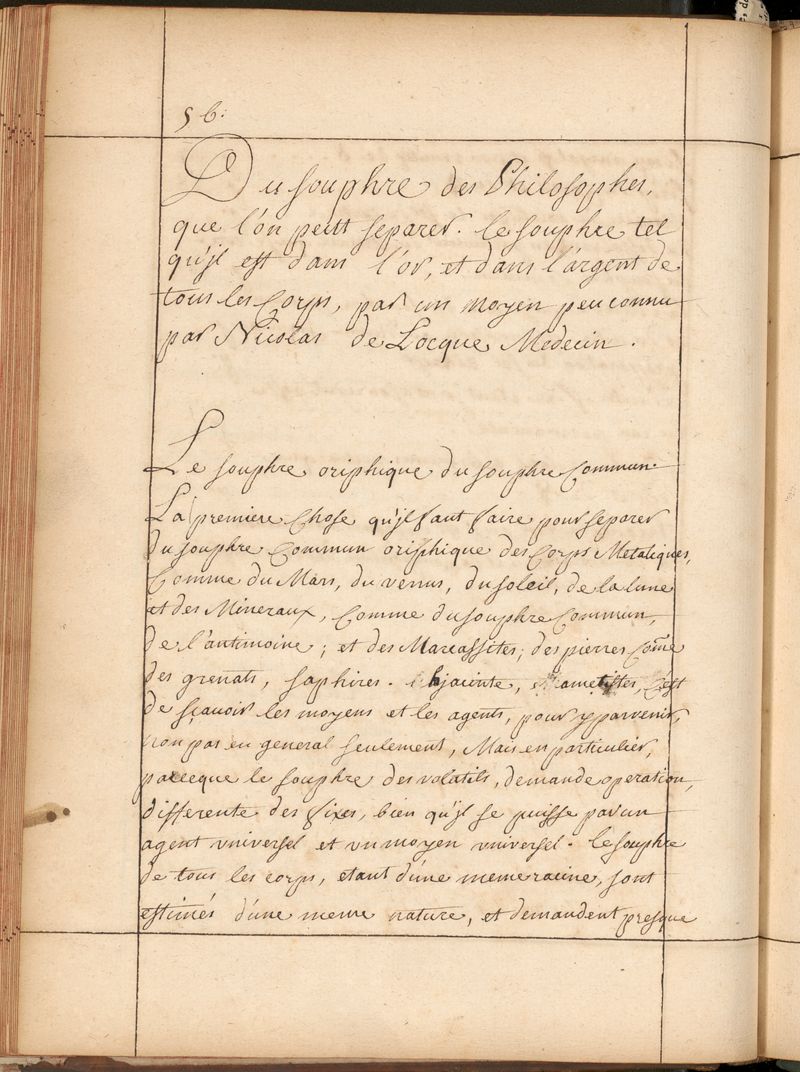 56.
Du souphre des Philosophes,
que l'on peut separer. le souphre tel
qu'jl est dans l'or, et dans l'argent de
tous les Corps, par un moyen peu connu
par Nicolas de Locque Medecin.
Le souphre oriphique du souphre Commun.
La premiere Chose qu'jl faut faire pour separer
du souphre Commun oriphique des Corps Metaliques,
Comme du Mars, du venus, du soleil, de la lune
et des Mineraux, Comme du souphre Commun,
de l'antimoine; et des Marcassites; des pierres Cõme
des grenats, saphires. hjacinte, ametistes, C'est
de sçavoir les moyens et les agents, pour y parvenir,
non pas en general seulement, Mais en particulier,
parceque le souphre des volatils, demande operation,
differente des fixes, bien qu'jl se puisse par un
agent vniversel et vn moyen vniversel. le souphre
de tous les corps, etant d'une meme racine, sont
estimés d'une meme nature, et demandent presque